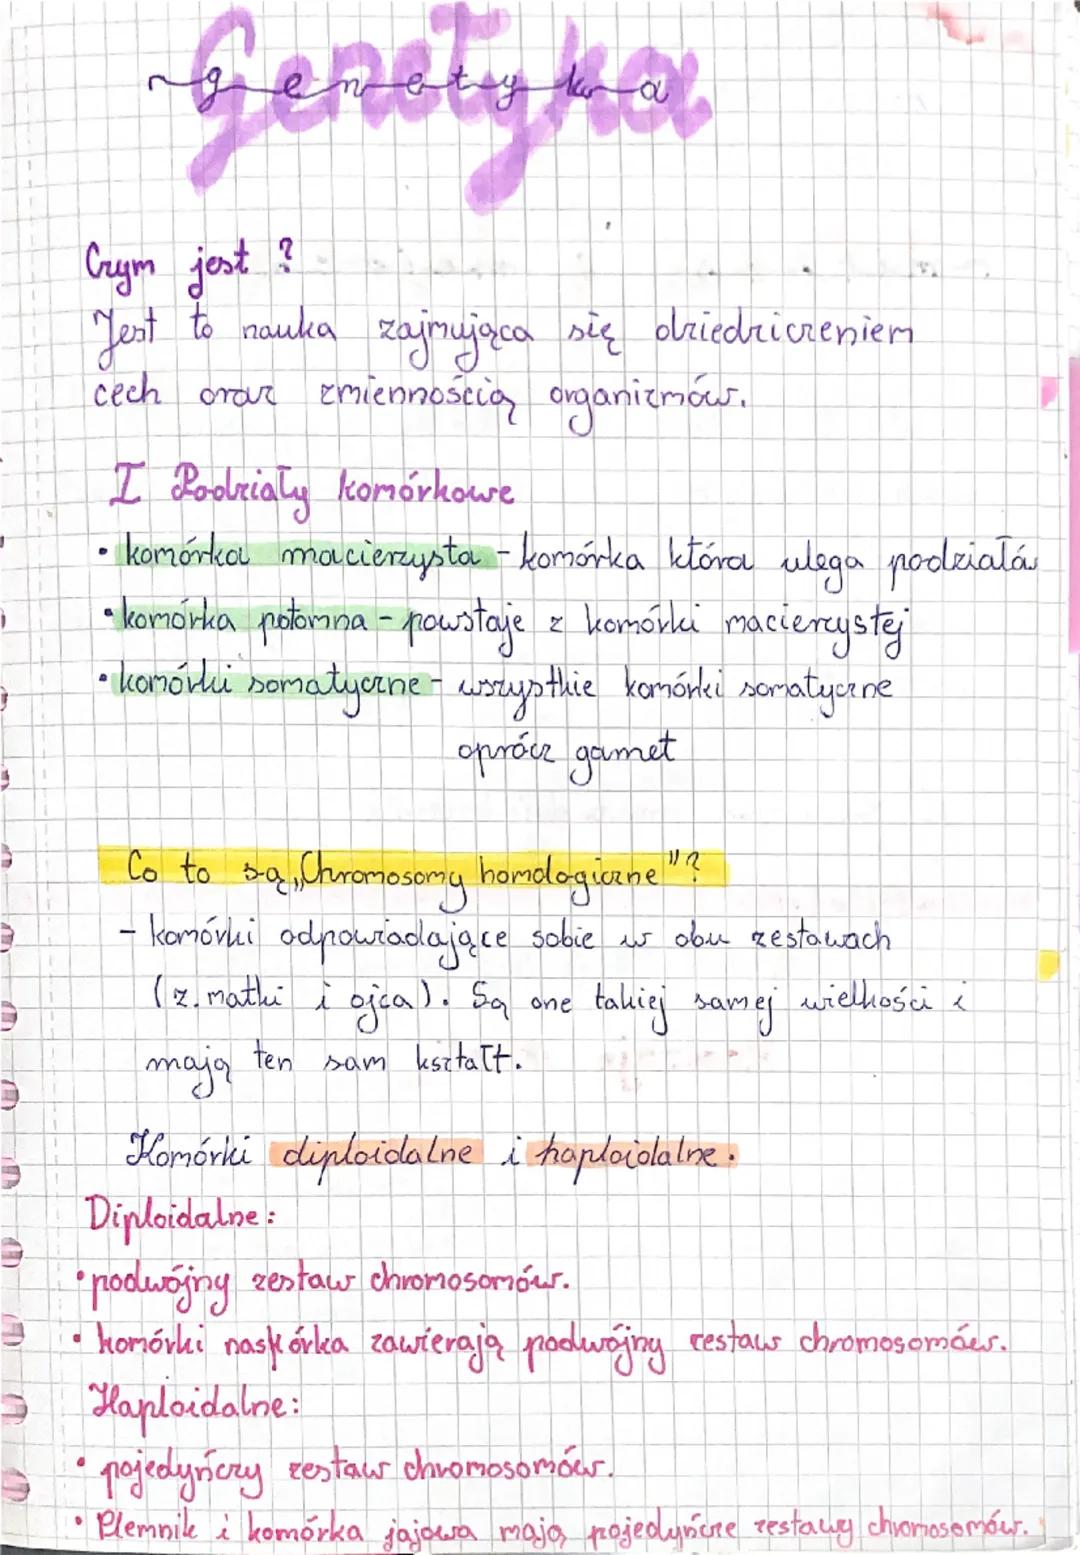 Genetyka
genetyka
Czym jest ?
Jest to nauka zajmująca się dziedziczeniem
cech oraz zmiennością organizmów.
I Podziały komórkowe
• komórka macierzysta - komórka która ulega podziałó
• komórka potomna - powstaje z komórki macierzystej
• komórki somatyczne - wszystkie komórki somatyczne
oprócz gamet
Co to są „Chromosomy homologiczne"?
- komórki odpowiadające sobie w obu zestawach
(z. matki i ojca). Są one takiej samej wielkości i
mają ten sam kształt.
Komórki diploidalne i haploidalne.
Diploidalne:
• podwójny zestaw chromosomów.
• komórki naskórka zawierają podwójny zestaw chromosomów.
Haploidalne:
• pojedyńczy zestaw chromosomów.
• Plemnik i komórka jajowa mają pojedyńcze zestawy chromosomów.